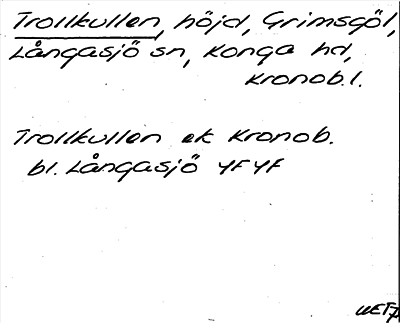 Trollkullen, höjd, Grimsgöl,
Långasjö sn, Konga hd,
Kronob.l.
Trollkullen ek Kronob.
bl. Långasjö YFYF